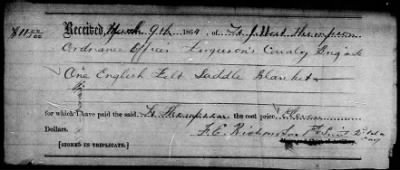 $11 00/100 Received, March 9th 1864 of Lt J. West Thompson
Ordnance Officer Ferguson's Cavalry Brigade
One English Felt Saddle Blanket
for which I have paid the said Lt. Thompson the cost price Eleven
Dollars.
F. C. 1st Lieut
[SIGNED IN TRIPLICATE.]